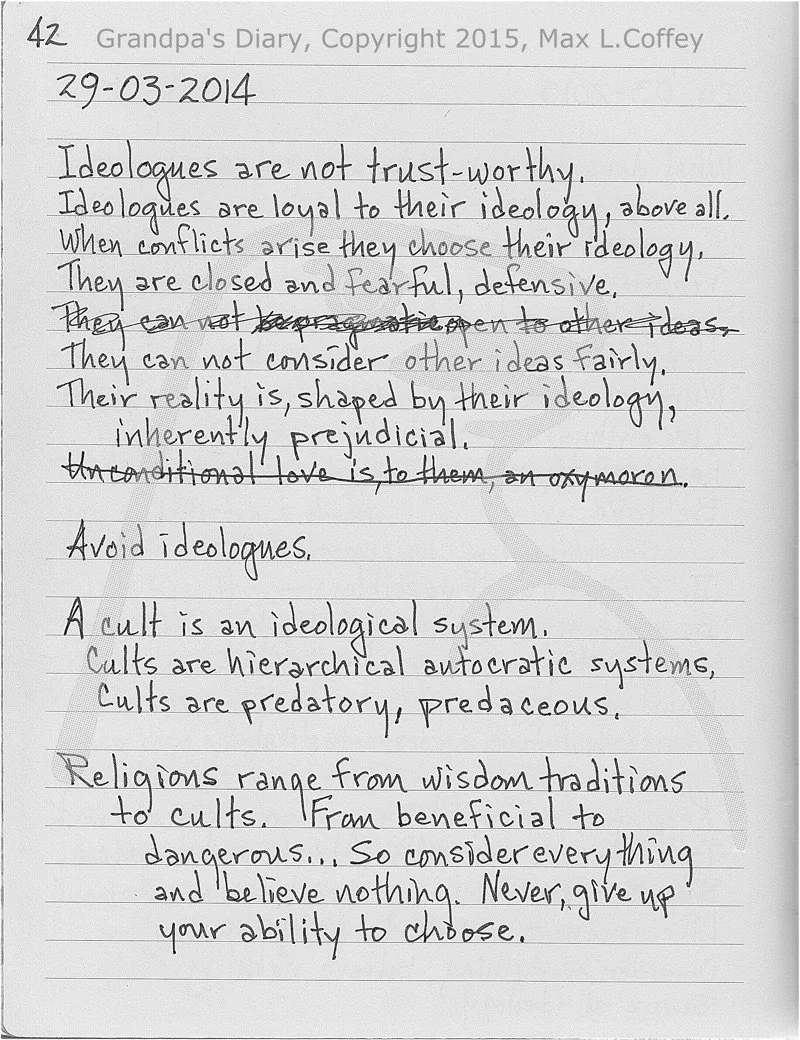 42 Grandpa's Diary, Copyright 2015, Max L.Coffey
29-03-2014
Ideologues are not trust-worthy.
Ideologues are loyal to their ideology, above all.
When conflicts arise they choose their ideology.
They are closed and fearful, defensive.
They can not be pragmatic open to other ideas,
They can not consider other ideas fairly.
Their reality is, shaped by their ideology,
inherently prejudicial.
Unconditional love is, to them, an oxymoron.
Avoid ideologues.
A cult is an ideological system.
Cults are hierarchical autocratic systems,
Cults are predatory, predaceous.
Religions range from wisdom traditions
to cults. From beneficial to
dangerous... So consider everything
and believe nothing. Never, give up
your ability to choose.